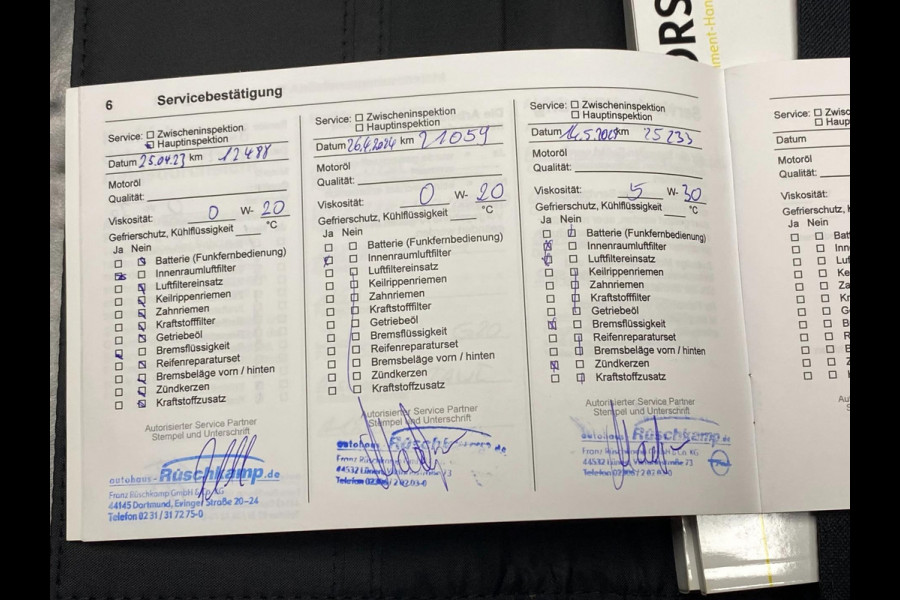 6 Servicebestätigung
Service: Zwischeninspektion
Hauptinspektion
Datum 25.04.23 km 12488
Motoröl
Qualität:
Viskosität: 0 W- 20
Gefrierschutz, Kühlflüssigkeit °C
Ja Nein
Batterie (Funkfernbedienung)
Innenraumluftfilter
Luftfiltereinsatz
Keilrippenriemen
Zahnriemen
Kraftstofffilter
Getriebeöl
Bremsflüssigkeit
Reifenreparaturset
Bremsbeläge vorn / hinten
Zündkerzen
Kraftstoffzusatz
Autorisierter Service Partner
Stempel und Unterschrift
autohaus-Rüschkamp.de
Franz Rüschkamp GmbH
44145 Dortmund, Evinger Straße 20-24
Telefon 02 31 / 31 72 75-0
Service: Zwischeninspektion
Hauptinspektion
Datum 26.4.2024 km 21059
Motoröl
Qualität:
Viskosität: 0 W- 20
Gefrierschutz, Kühlflüssigkeit °C
Ja Nein
Batterie (Funkfernbedienung)
Innenraumluftfilter
Luftfiltereinsatz
Keilrippenriemen
Zahnriemen
Kraftstofffilter
Getriebeöl
Bremsflüssigkeit
Reifenreparaturset
Bremsbeläge vorn / hinten
Zündkerzen
Kraftstoffzusatz
Autorisierter Service Partner
Stempel und Unterschrift
autohaus
Franz
44532
Telefon
Service: Zwischeninspektion
Hauptinspektion
Datum km 25233
Motoröl
Qualität:
Viskosität: 5 W- 30
Gefrierschutz, Kühlflüssigkeit °C
Ja Nein
Batterie (Funkfernbedienung)
Innenraumluftfilter
Luftfiltereinsatz
Keilrippenriemen
Zahnriemen
Kraftstofffilter
Getriebeöl
Bremsflüssigkeit
Reifenreparaturset
Bremsbeläge vorn / hinten
Zündkerzen
Kraftstoffzusatz
Autorisierter Service Partner
Stempel und Unterschrift
autohaus Rüschkamp.de
Franz
44532
Telefon
Service: Zwisc
Haup
Datum
Motoröl
Qualität:
Viskosität:
Gefrierschutz,
Ja Nein
Batt
Inn
Luf
Ke
Za
Kr
G
B
R
B
Z
K
ORS
ment-Han